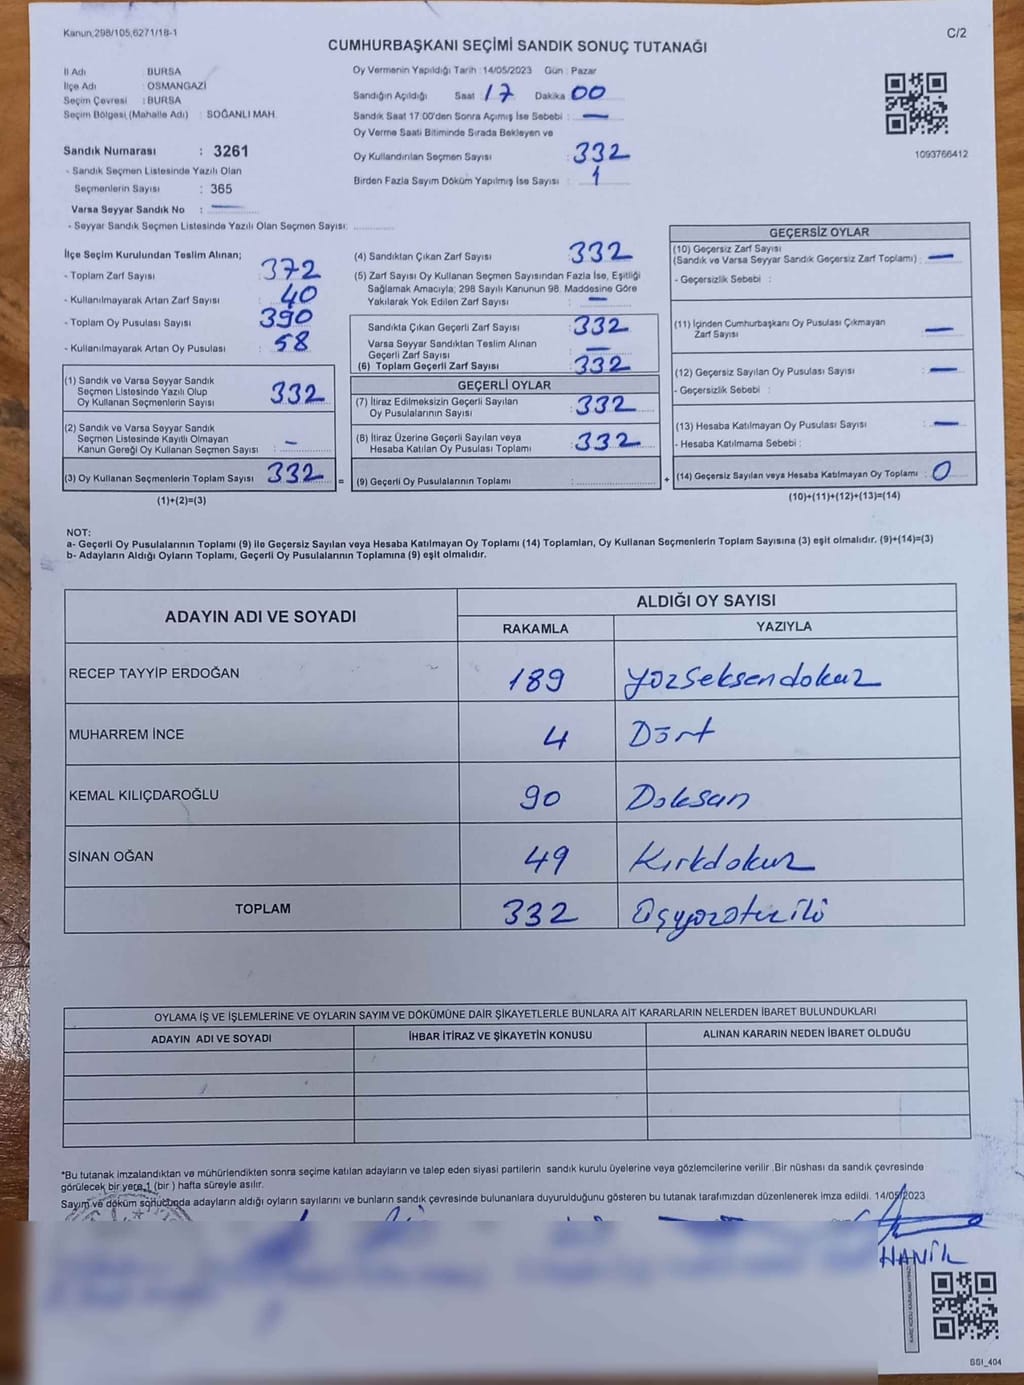 Kanun,298/105,6271/18-1
C/2
CUMHURBAŞKANI SEÇİMİ SANDIK SONUÇ TUTANAĞI
İl Adı : BURSA
İlçe Adı : OSMANGAZİ
Seçim Çevresi : BURSA
Seçim Bölgesi (Mahalle Adı) : SOĞANLI MAH.
Sandık Numarası : 3261
- Sandık Seçmen Listesinde Yazılı Olan
Seçmenlerin Sayısı : 365
Varsa Seyyar Sandık No : —
- Seyyar Sandık Seçmen Listesinde Yazılı Olan Seçmen Sayısı:
Oy Vermenin Yapıldığı Tarih : 14/05/2023 Gün : Pazar
Sandığın Açıldığı Saat 17 Dakika 00
Sandık Saat 17:00'den Sonra Açımış İse Sebebi : —
Oy Verme Saati Bitiminde Sırada Bekleyen ve
Oy Kullandırılan Seçmen Sayısı : 332
Birden Fazla Sayım Döküm Yapılmış İse Sayısı : 1
1093766412
İlçe Seçim Kurulundan Teslim Alınan;
- Toplam Zarf Sayısı : 372
- Kullanılmayarak Artan Zarf Sayısı : 40
- Toplam Oy Pusulası Sayısı : 390
- Kullanılmayarak Artan Oy Pusulası : 58
(1) Sandık ve Varsa Seyyar Sandık
Seçmen Listesinde Yazılı Olup
Oy Kullanan Seçmenlerin Sayısı : 332
(2) Sandık ve Varsa Seyyar Sandık
Seçmen Listesinde Kayıtlı Olmayan
Kanun Gereği Oy Kullanan Seçmen Sayısı : —
(3) Oy Kullanan Seçmenlerin Toplam Sayısı : 332
(1)+(2)=(3)
(4) Sandıktan Çıkan Zarf Sayısı : 332
(5) Zarf Sayısı Oy Kullanan Seçmen Sayısından Fazla İse, Eşitliği
Sağlamak Amacıyla; 298 Sayılı Kanunun 98. Maddesine Göre
Yakılarak Yok Edilen Zarf Sayısı : —
Sandıkta Çıkan Geçerli Zarf Sayısı : 332
Varsa Seyyar Sandıktan Teslim Alınan
Geçerli Zarf Sayısı : —
(6) Toplam Geçerli Zarf Sayısı : 332
GEÇERLİ OYLAR
(7) İtiraz Edilmeksizin Geçerli Sayılan
Oy Pusulalarının Sayısı : 332
(8) İtiraz Üzerine Geçerli Sayılan veya
Hesaba Katılan Oy Pusulası Toplamı : 332
= (9) Geçerli Oy Pusulalarının Toplamı :
GEÇERSİZ OYLAR
(10) Geçersiz Zarf Sayısı
(Sandık ve Varsa Seyyar Sandık Geçersiz Zarf Toplamı) : —
- Geçersizlik Sebebi :
(11) İçinden Cumhurbaşkanı Oy Pusulası Çıkmayan
Zarf Sayısı : —
(12) Geçersiz Sayılan Oy Pusulası Sayısı : —
- Geçersizlik Sebebi :
(13) Hesaba Katılmayan Oy Pusulası Sayısı : —
- Hesaba Katılmama Sebebi :
+ (14) Geçersiz Sayılan veya Hesaba Katılmayan Oy Toplamı : 0
(10)+(11)+(12)+(13)=(14)
NOT:
a- Geçerli Oy Pusulalarının Toplamı (9) ile Geçersiz Sayılan veya Hesaba Katılmayan Oy Toplamı (14) Toplamları, Oy Kullanan Seçmenlerin Toplam Sayısına (3) eşit olmalıdır. (9)+(14)=(3)
b- Adayların Aldığı Oyların Toplamı, Geçerli Oy Pusulalarının Toplamına (9) eşit olmalıdır.
ADAYIN ADI VE SOYADI
ALDIĞI OY SAYISI
RAKAMLA YAZIYLA
RECEP TAYYİP ERDOĞAN 189 yüzseksendokuz
MUHARREM İNCE 4 Dört
KEMAL KILIÇDAROĞLU 90 Doksan
SİNAN OĞAN 49 Kırkdokuz
TOPLAM 332 Üçyüzotuziki
OYLAMA İŞ VE İŞLEMLERİNE VE OYLARIN SAYIM VE DÖKÜMÜNE DAİR ŞİKAYETLERLE BUNLARA AİT KARARLARIN NELERDEN İBARET BULUNDUKLARI
ADAYIN ADI VE SOYADI İHBAR İTİRAZ VE ŞİKAYETİN KONUSU ALINAN KARARIN NEDEN İBARET OLDUĞU
*Bu tutanak imzalandıktan ve mühürlendikten sonra seçime katılan adayların ve talep eden siyasi partilerin sandık kurulu üyelerine veya gözlemcilerine verilir .Bir nüshası da sandık çevresinde
görülecek bir yere 1 (bir ) hafta süreyle asılır.
Sayım ve döküm sonucunda adayların aldığı oyların sayılarını ve bunların sandık çevresinde bulunanlara duyurulduğunu gösteren bu tutanak tarafımızdan düzenlenerek imza edildi. 14/05/2023
HANİK
SSI_404